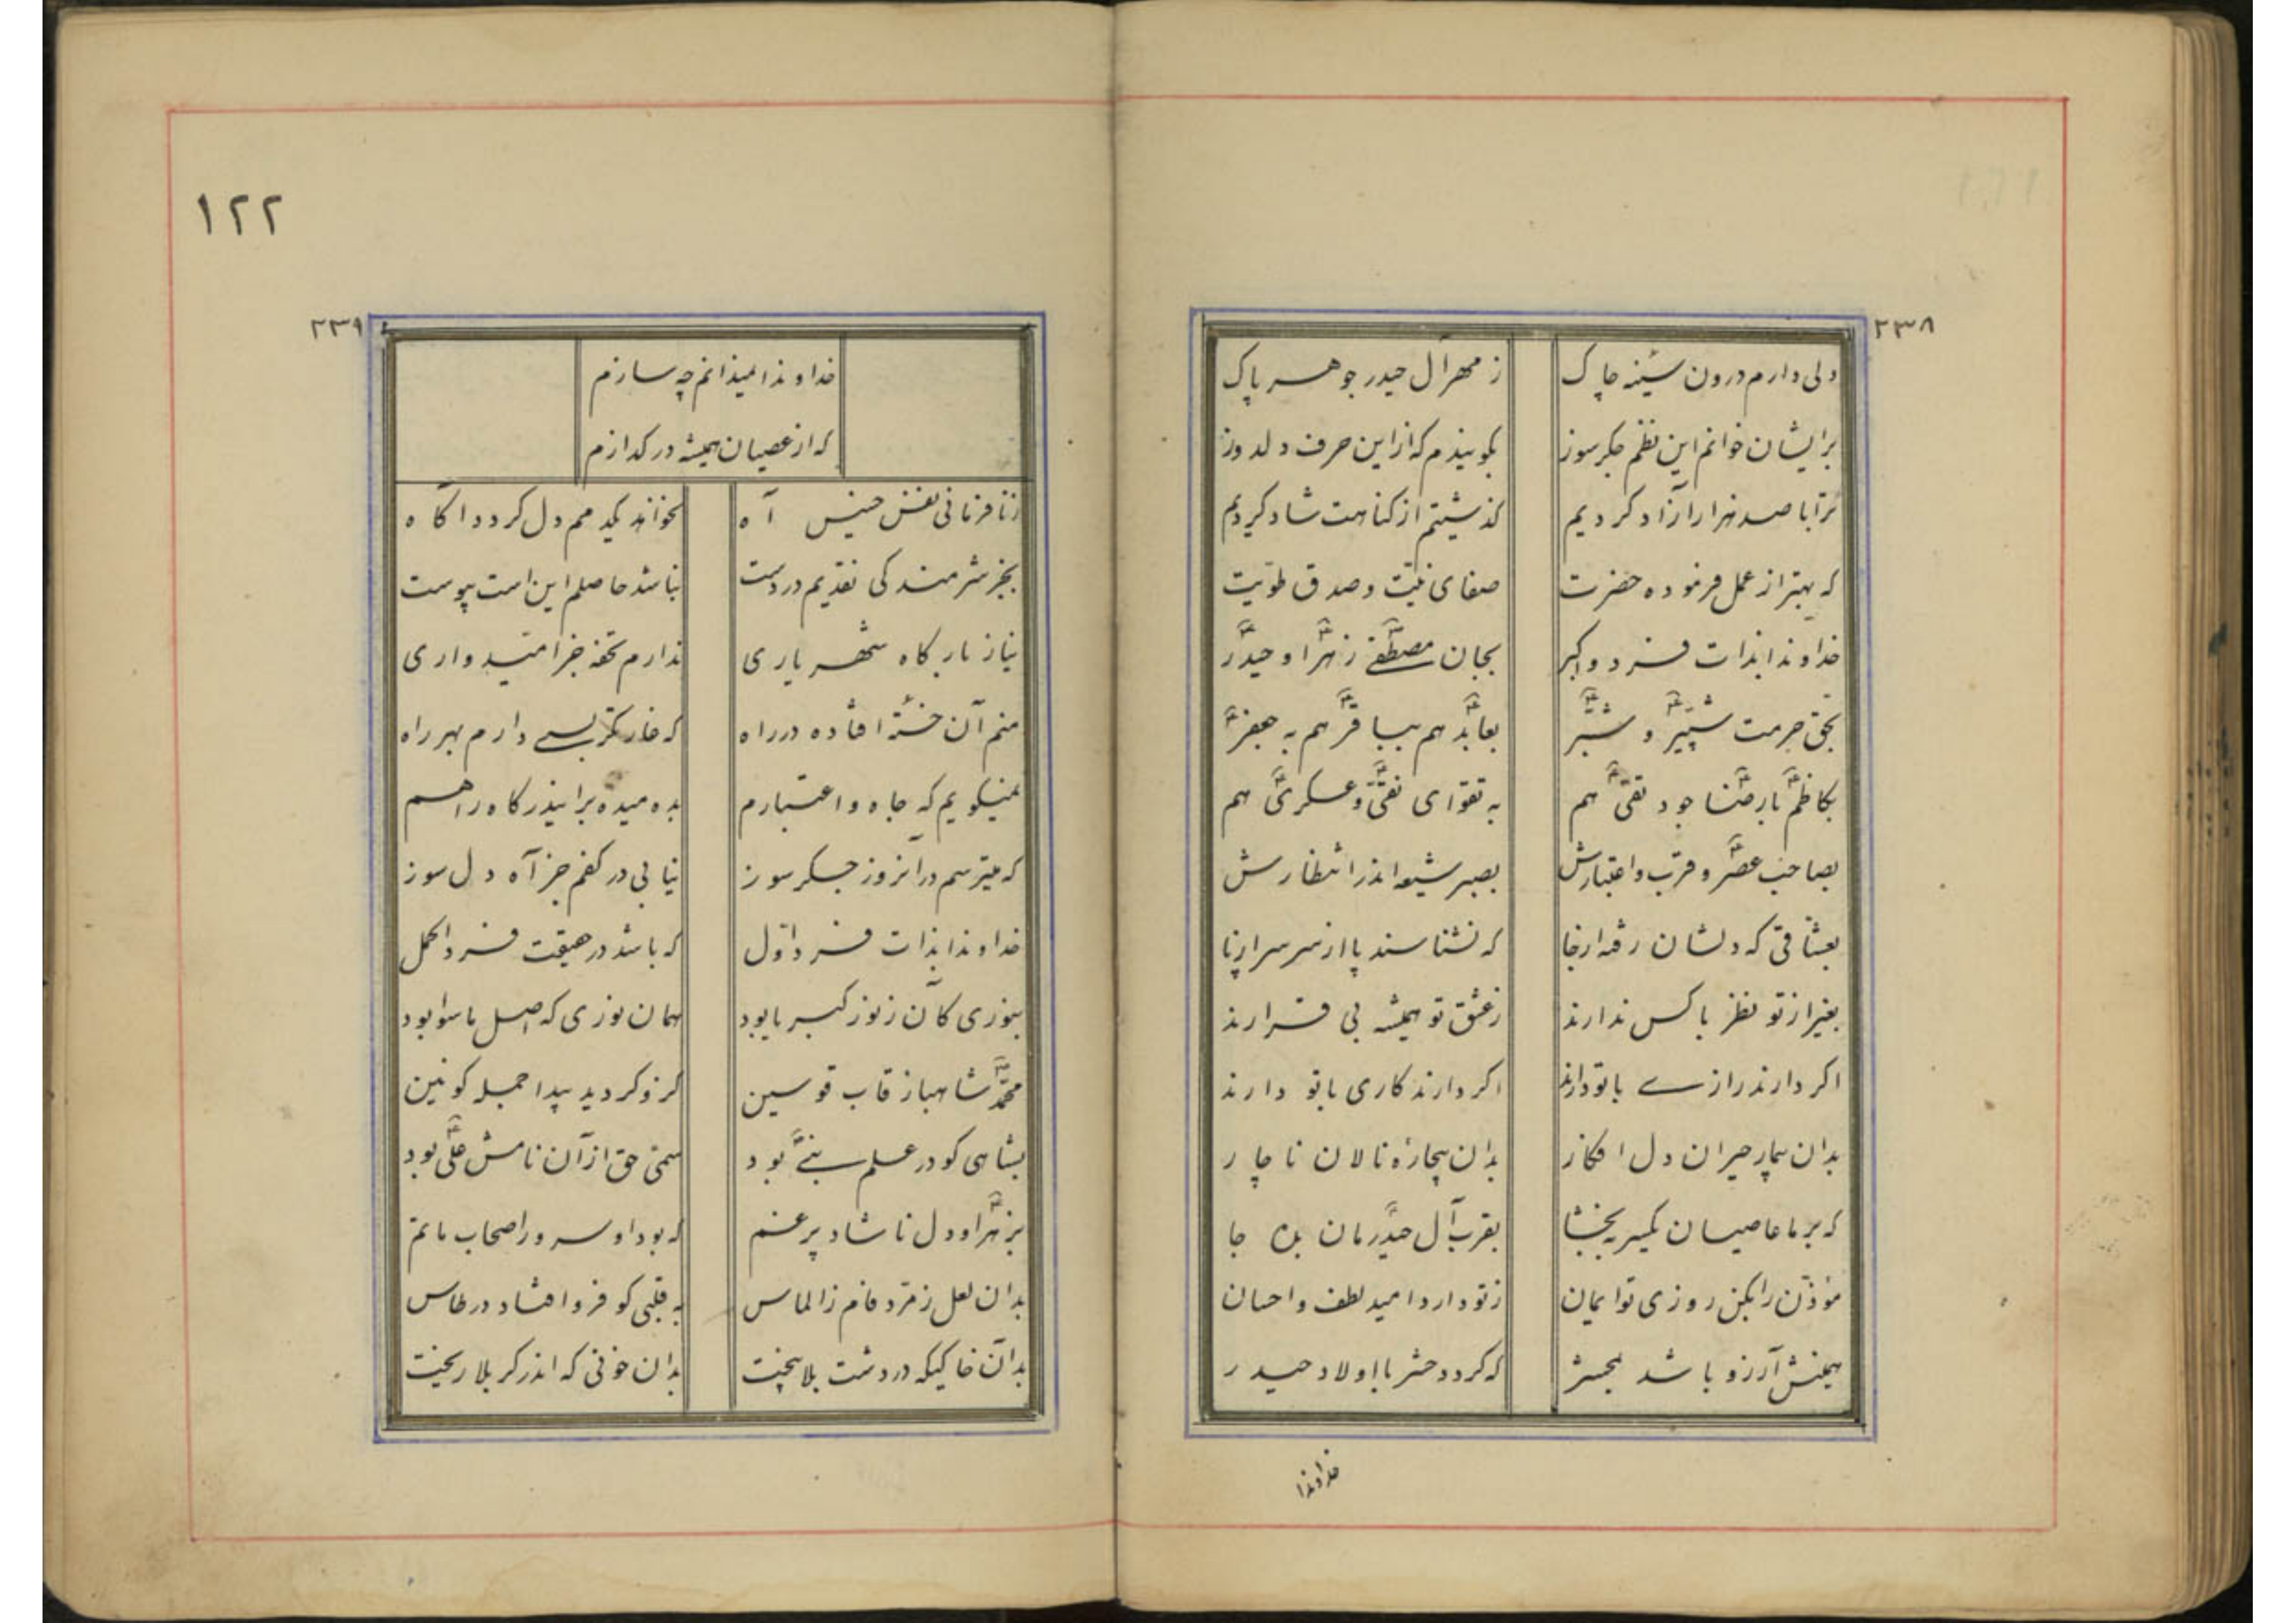 ۲۳۸
دلی دارم درون سینه چاک ز مهر آل حیدر جوهر پاک
برایشان خوانم این نظم جگرسوز بگویندم که از این حرف دلدوز
ترا با صد هزار آزاد کردیم گذشتیم از گناهت شاد کردیم
که بهتر از عمل فرموده حضرت صفای نیّت و صدق طویّت
خداوندا بذات فرد و اکبر بجان مصطفی زهرا و حیدر
بحق حرمت شبّیر و شبّر بعابد هم ببا قر هم به جعفر
بکاظم با رضا جود تقی هم به تقوای نقی و عسکری هم
بصاحب عصر و قرب و اعتبارش بصبر شیعه اندر انتظارش
بعشاقی که دلشان رفته از جا که نشناسند پا از سر سر از پا
بغیر از تو نظر با کس ندارند ز عشق تو همیشه بی قرارند
اگر دارند رازی با تو دارند اگر دارند کاری با تو دارند
بدان بیمار حیران دل افکار بدان بیچارهٔ نالان ناچار
که بر ما عاصیان یکسر ببخشا بقرب آل حیدرمان بده جا
مؤذّن را بکن روزی تو ایمان ز تو دارد امید لطف و احسان
همینش آرزو باشد بمحشر که گردد حشر با اولاد حیدر
خداوندا
۱۲۲
۲۳۹
خداوندا نمیدانم چه سازم
که از عصیان همیشه در گدازم
ز نافرمانی نفس خسیس آه نخواند یکدمم دل گردد آگاه
بجز شرمندگی نقدیم در دست نباشد حاصلم این است پیوست
نیاز بارگاه شهریاری ندارم تحفه جز امّیدواری
منم آن خستهٔ افتاده در راه که خار بسی دارم بهر راه
نمیگویم که جاه و اعتبارم بده میده براین درگاه راهم
که میترسم در آنروز جگرسوز نیابی در کفم جز آه دل سوز
خداوندا بذات فرد اوّل که باشد در حقیقت فرد اکمل
بنوری کان ز نور کبریا بود همان نوری که اصل ماسوا بود
محمّد شاهباز قاب قوسین کزو گردید پیدا جمله کونین
بشاهی کو در علم نبی بود سمیّ حق از آن نامش علی بود
بزهرا و دل ناشاد پر غم که بود او سرور اصحاب ماتم
بدان لعل زمرّد فام ز الماس به قلبی کو فرو افتاد در طاس
بدان خاکیکه در دشت بلا بیخت بدان خونی که اندر کربلا ریخت